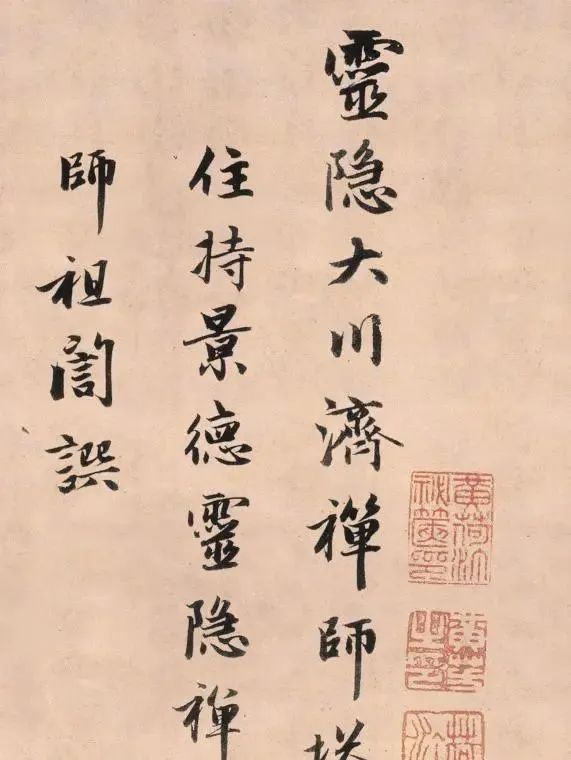 靈隐大川濟禪師塔
住持景德靈隐禪
師祖誾譔